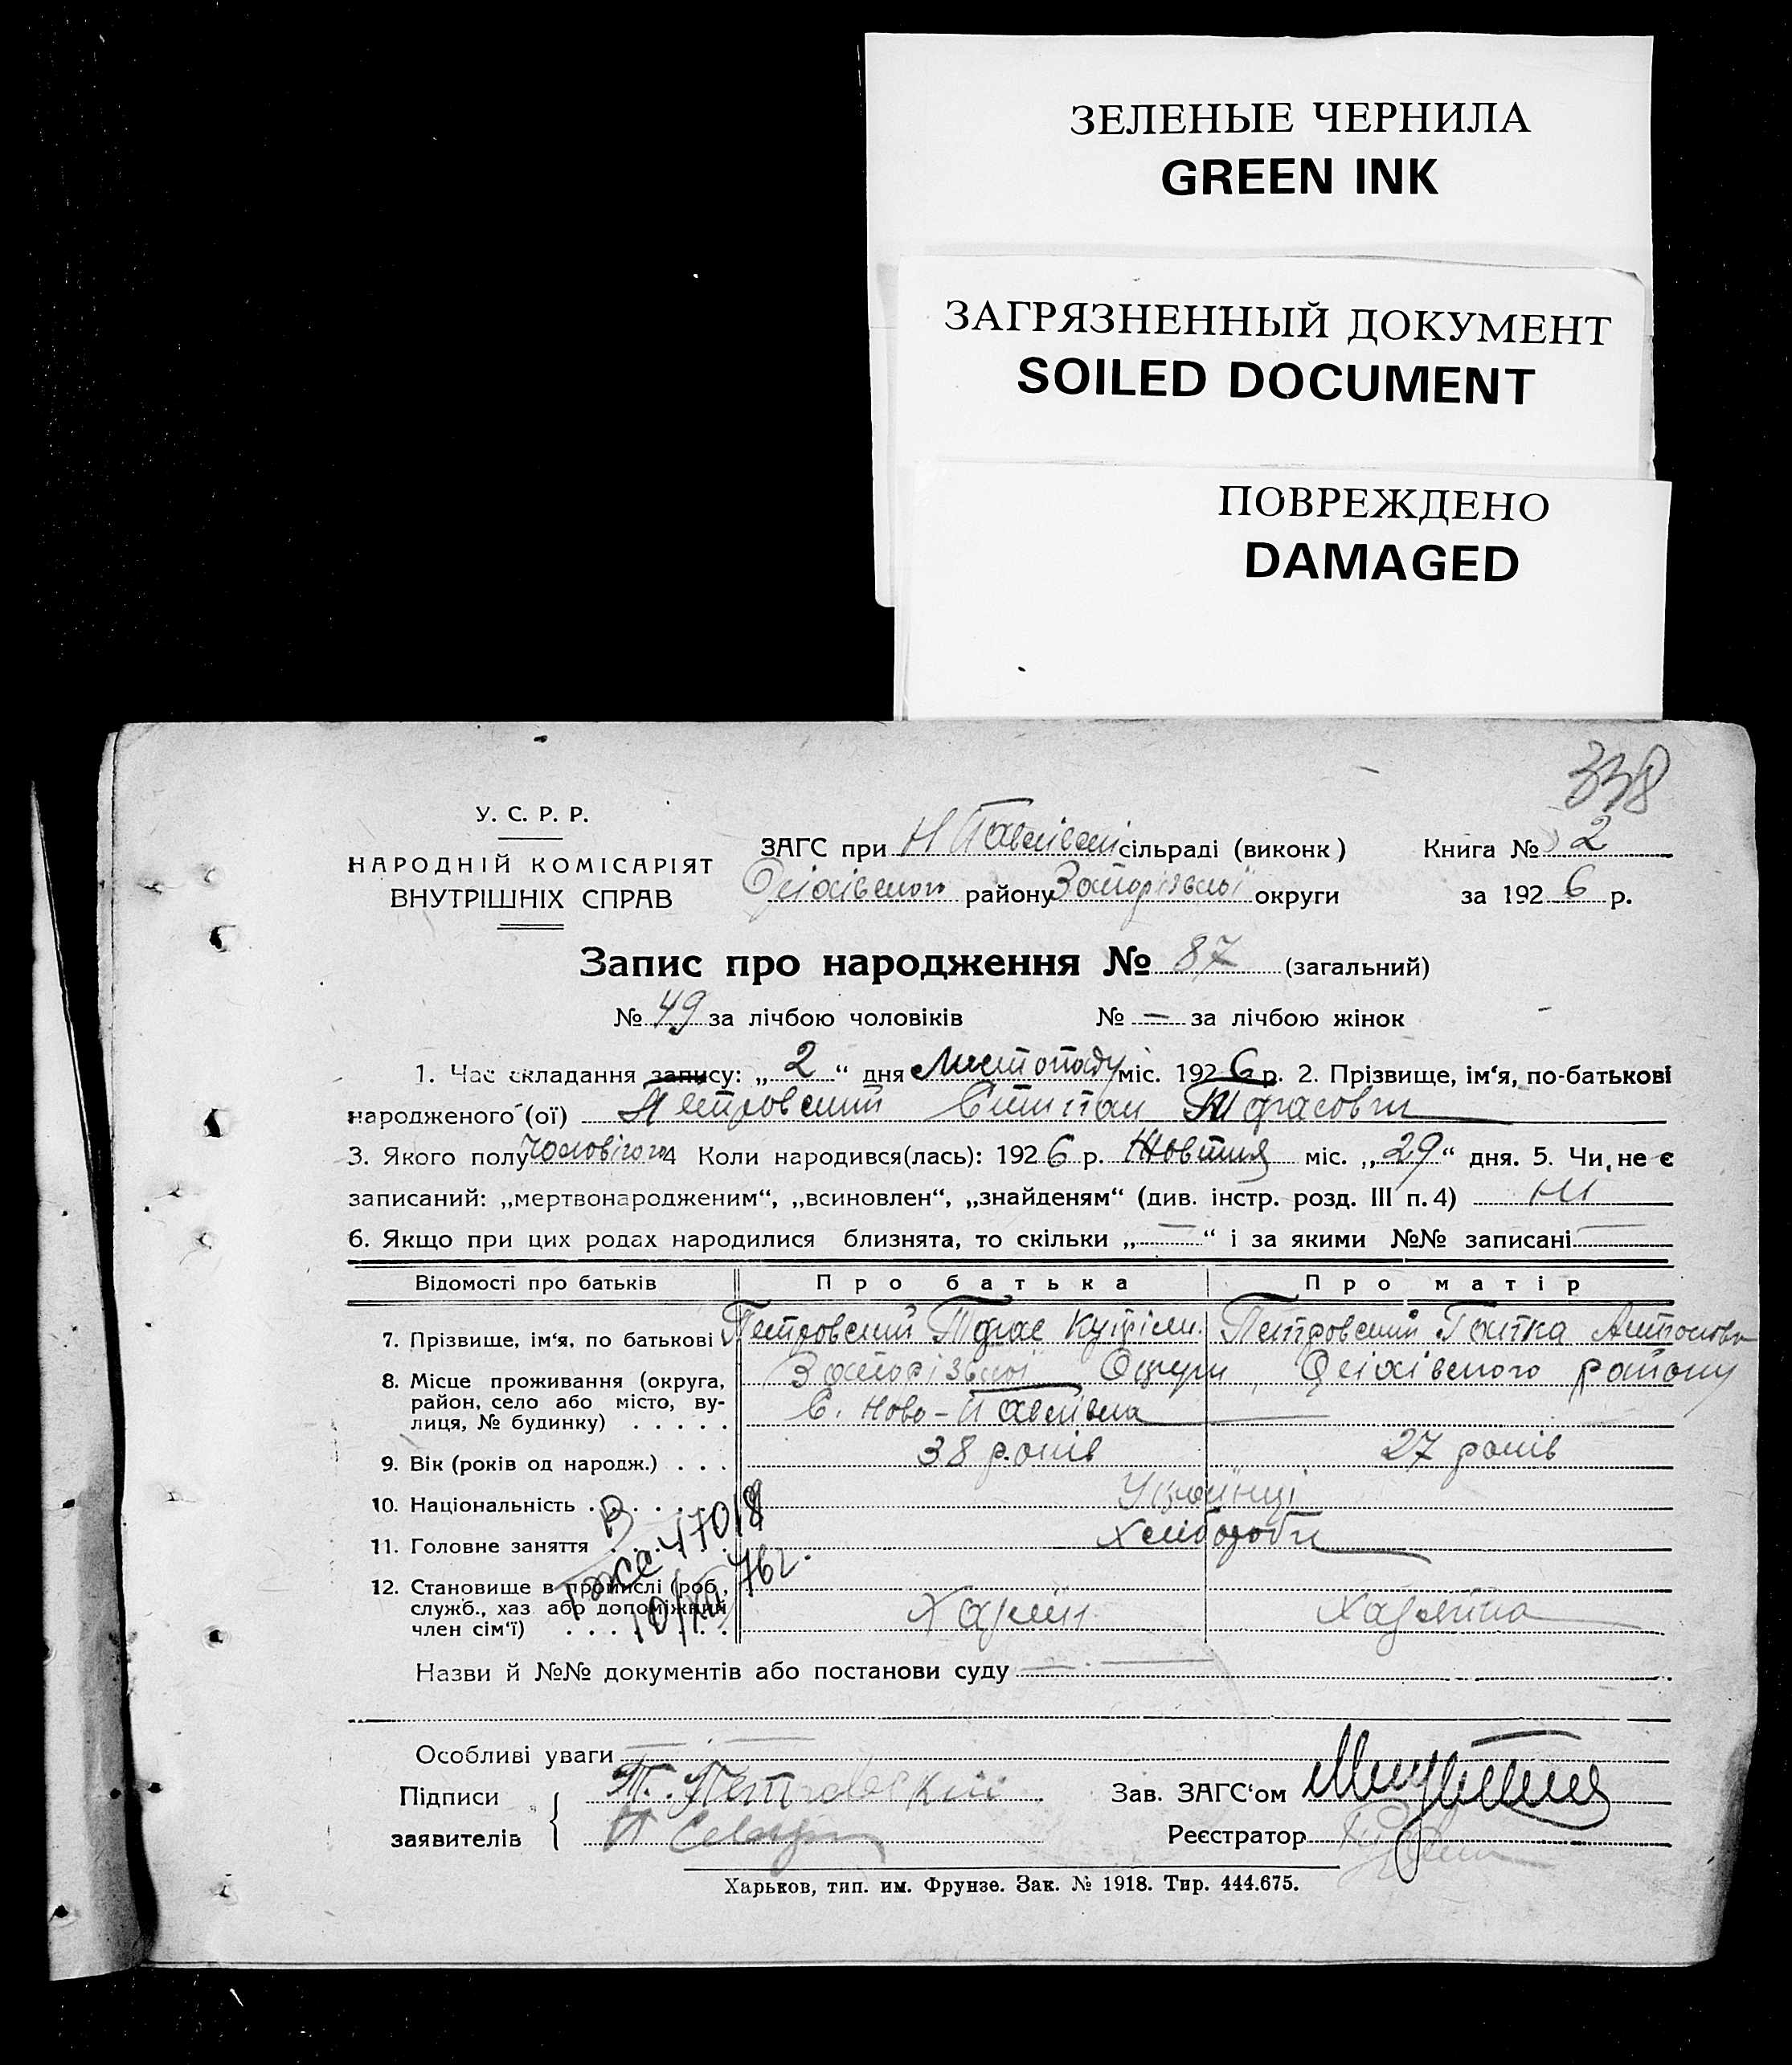 ЗЕЛЕНЫЕ ЧЕРНИЛА
GREEN INK
ЗАГРЯЗНЕННЫЙ ДОКУМЕНТ
SOILED DOCUMENT
ПОВРЕЖДЕНО
DAMAGED
338
У. С. Р. Р.
НАРОДНІЙ КОМІСАРІЯТ
ВНУТРІШНІХ СПРАВ
ЗАГС при Н Павлівській сільраді (виконк) Книга № 2
Оріхівського району Запорізької округи за 1926 р.
Запис про народження № 87 (загальний)
№ 49 за лічбою чоловіків № — за лічбою жінок
1. Час складання запису: „ 2 “ дня Листопаду міс. 1926 р. 2. Прізвище, ім‘я, по-батькові
народженого (ої) Петровский Степан Тарасович
3. Якого полу Чоловічого 4 Коли народився(лась): 1926 р. Жовтня міс. „29“ дня. 5. Чи не є
записаний: „мертвонародженим“, „всиновлен“, „знайденям“ (див. інстр. розд. III п. 4) Ні
6. Якщо при цих родах народилися близнята, то скільки „—“ і за якими №№ записані —
Відомості про батьків Про батька Про матір
7. Прізвище, ім‘я, по батькові Петровский Тарас Петровский
8. Місце проживання (округа, Запорізької Округи, Оріхівського району
район, село або місто, ву- С. Ново-Павлівка
лиця, № будинку)
9. Вік (років од народж.) 38 років 27 років
10. Національність Українці
11. Головне заняття Хлібороби
12. Становище в промислі (роб,
служб., хаз або допоміжний Хазяїн Хазяйка
член сім‘ї)
Назви й №№ документів або постанови суду —
Особливі уваги —
Підписи Т. Петровский Зав. ЗАГС‘ом
заявителів Реєстратор
Харьков, тип. им. Фрунзе. Зак. № 1918. Тир. 444.675.